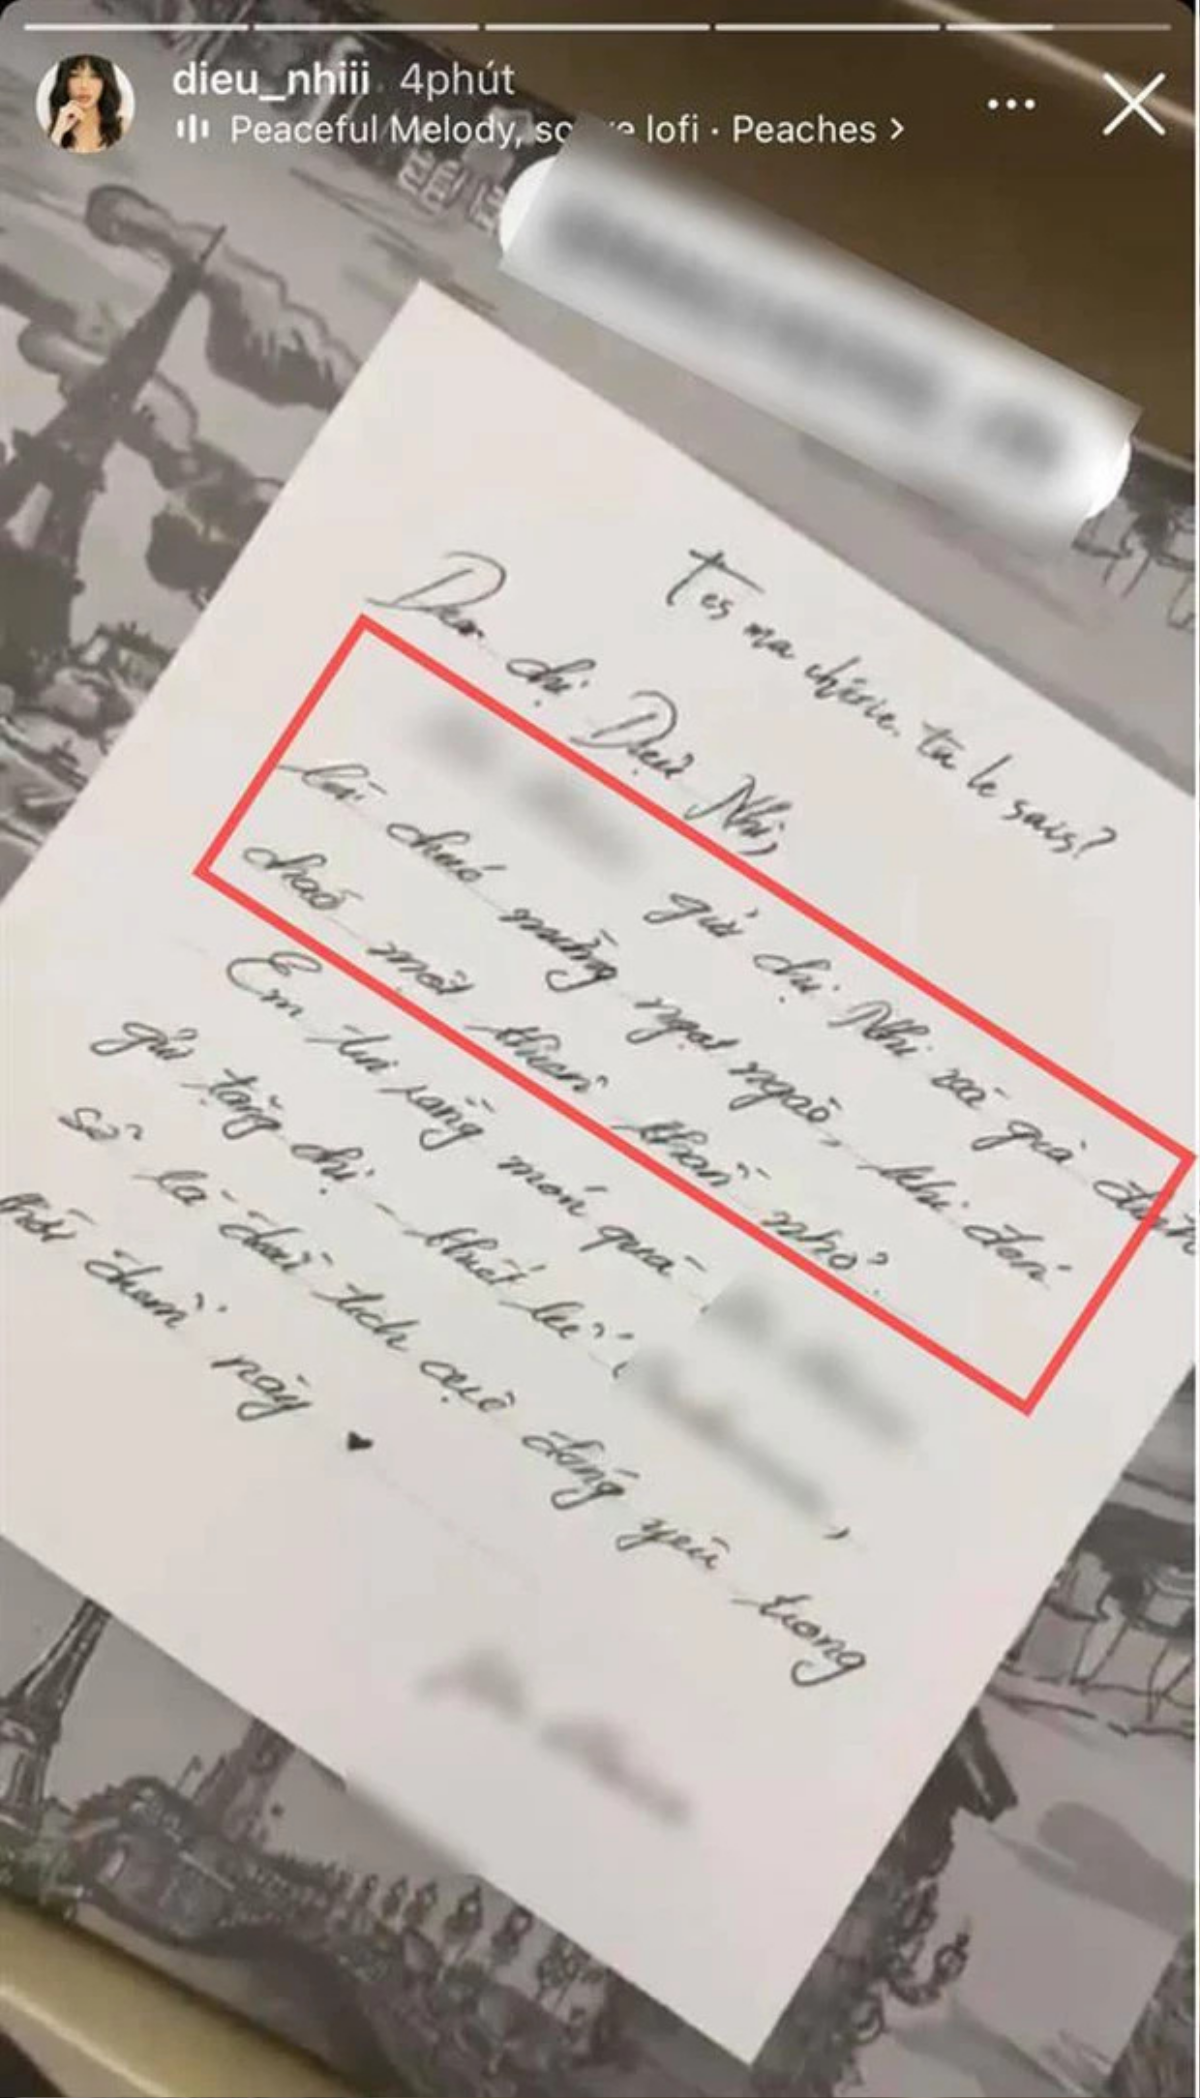 dieu_nhiii 4phút
Peaceful Melody, lofi · Peaches >
T'es ma chérie, tu le sais?
Dear chị Diệu Nhi,
gửi chị Nhi và gia đình
lời chúc mừng ngọt ngào, khi đón
chào một thiên thần nhỏ.
Em tin rằng món quà
gửi tặng chị - thiết kế
sẽ là dấu tích cực đáng yêu trong
thời điểm này ♥